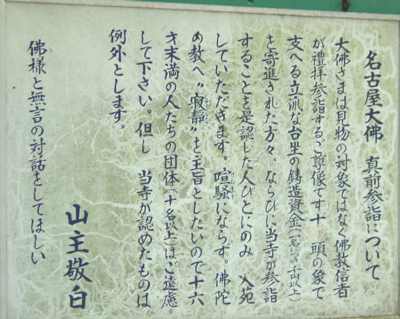 名古屋大佛 真前参詣について
大佛さまは見物の対象ではなく佛教信者
が禮拝参詣するご尊像です十 頭の象で
支へる立派な台坐の鋳造資金
を寄進された方々、ならびに当寺が参詣
することを是認した人びとにのみ 入苑
していただきます。喧騒にならず。佛陀
の教へ“寂静”を主旨としたいので十六
才末満の人たちの団体(十名以上)はご遠慮
して下さい。但し 当寺が認めたものは
例外とします。
佛様と無言の対話をしてほしい
山主敬白